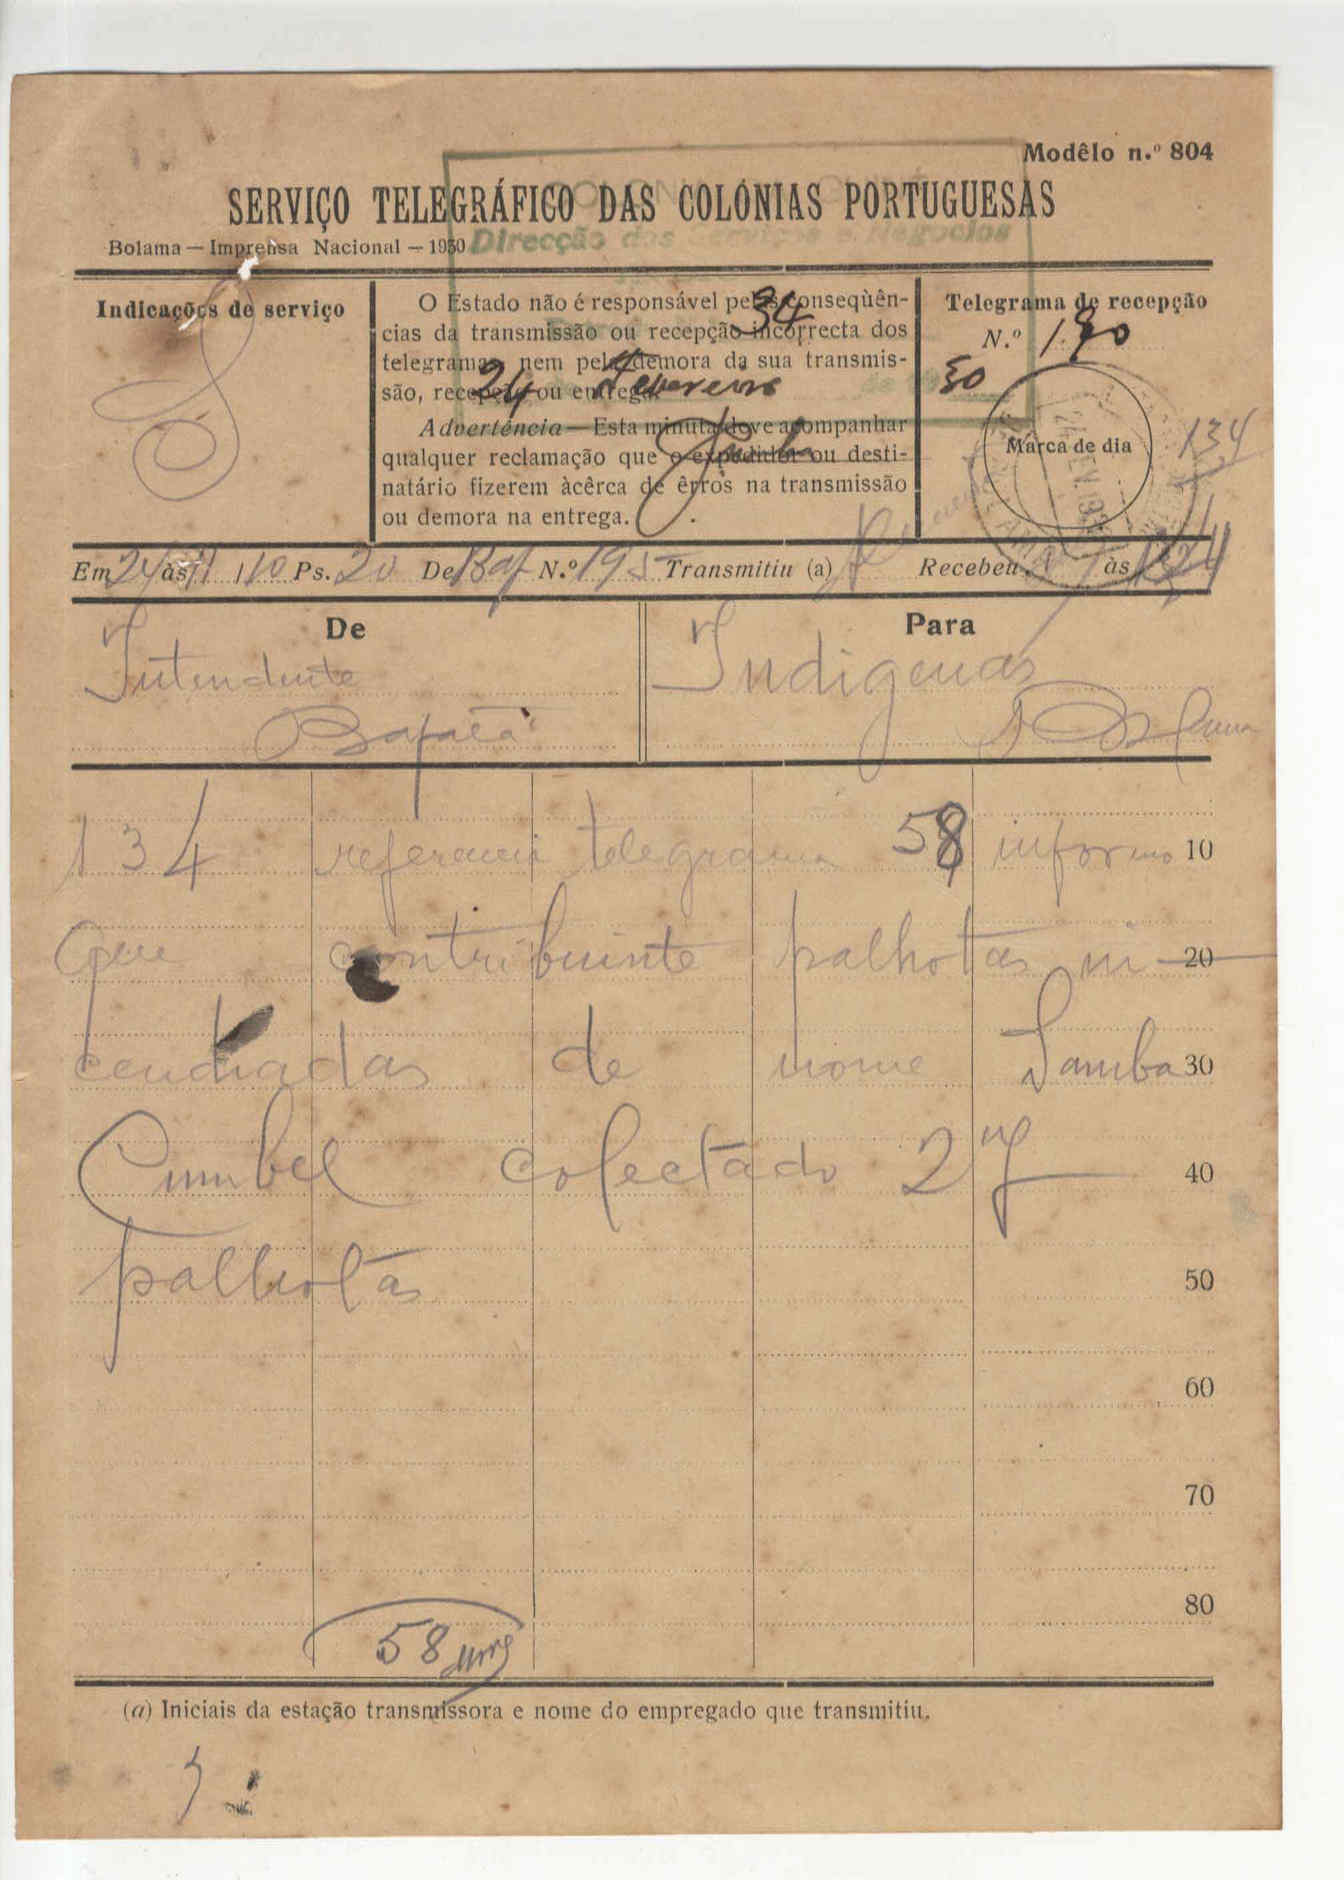 Modêlo n.º 804
SERVIÇO TELEGRÁFICO DAS COLÓNIAS PORTUGUESAS
Bolama — Imprensa Nacional — 1930
Direcção dos Serviços e Negocios
Indicações de serviço
S
O Estado não é responsável pelas conseqùên-
cias da transmissão ou recepção incorrecta dos
telegramas, nem pela demora da sua transmis-
são, recepção ou entrega.
Advertência — Esta minuta deve acompanhar
qualquer reclamação que o expedidor ou desti-
natário fizerem àcêrca de êrros na transmissão
ou demora na entrega.
34
24 Fevereiro
de 19 30
Telegrama de recepção
N.º 190
Marca de dia
134
Em 24 às 11 10 Ps. 20 De Baf N.º 195 Transmitiu (a) Recebeu às
De
Intendente
Bafatá
Para
Indigenas
Bolama
134 referencia telegrama 58 informo 10
que contribuinte palhotas in- 20
cendiadas de nome Samba 30
Cumbel colectado 27 40
palhotas 50
60
70
80
58
(a) Iniciais da estação transmissora e nome do empregado que transmitiu.